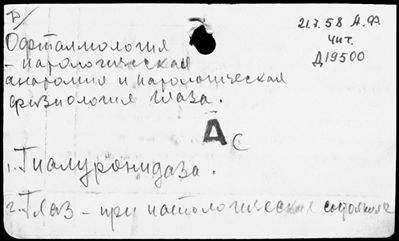 Б/
21.7.58 А.Ф.
Чит.
Д19500
Офталмология
- патологическая
анатомия и патологическая
физиология глаза.
А С
1. Гиалуронидаза.
2. Глаз - при патологических состояниях